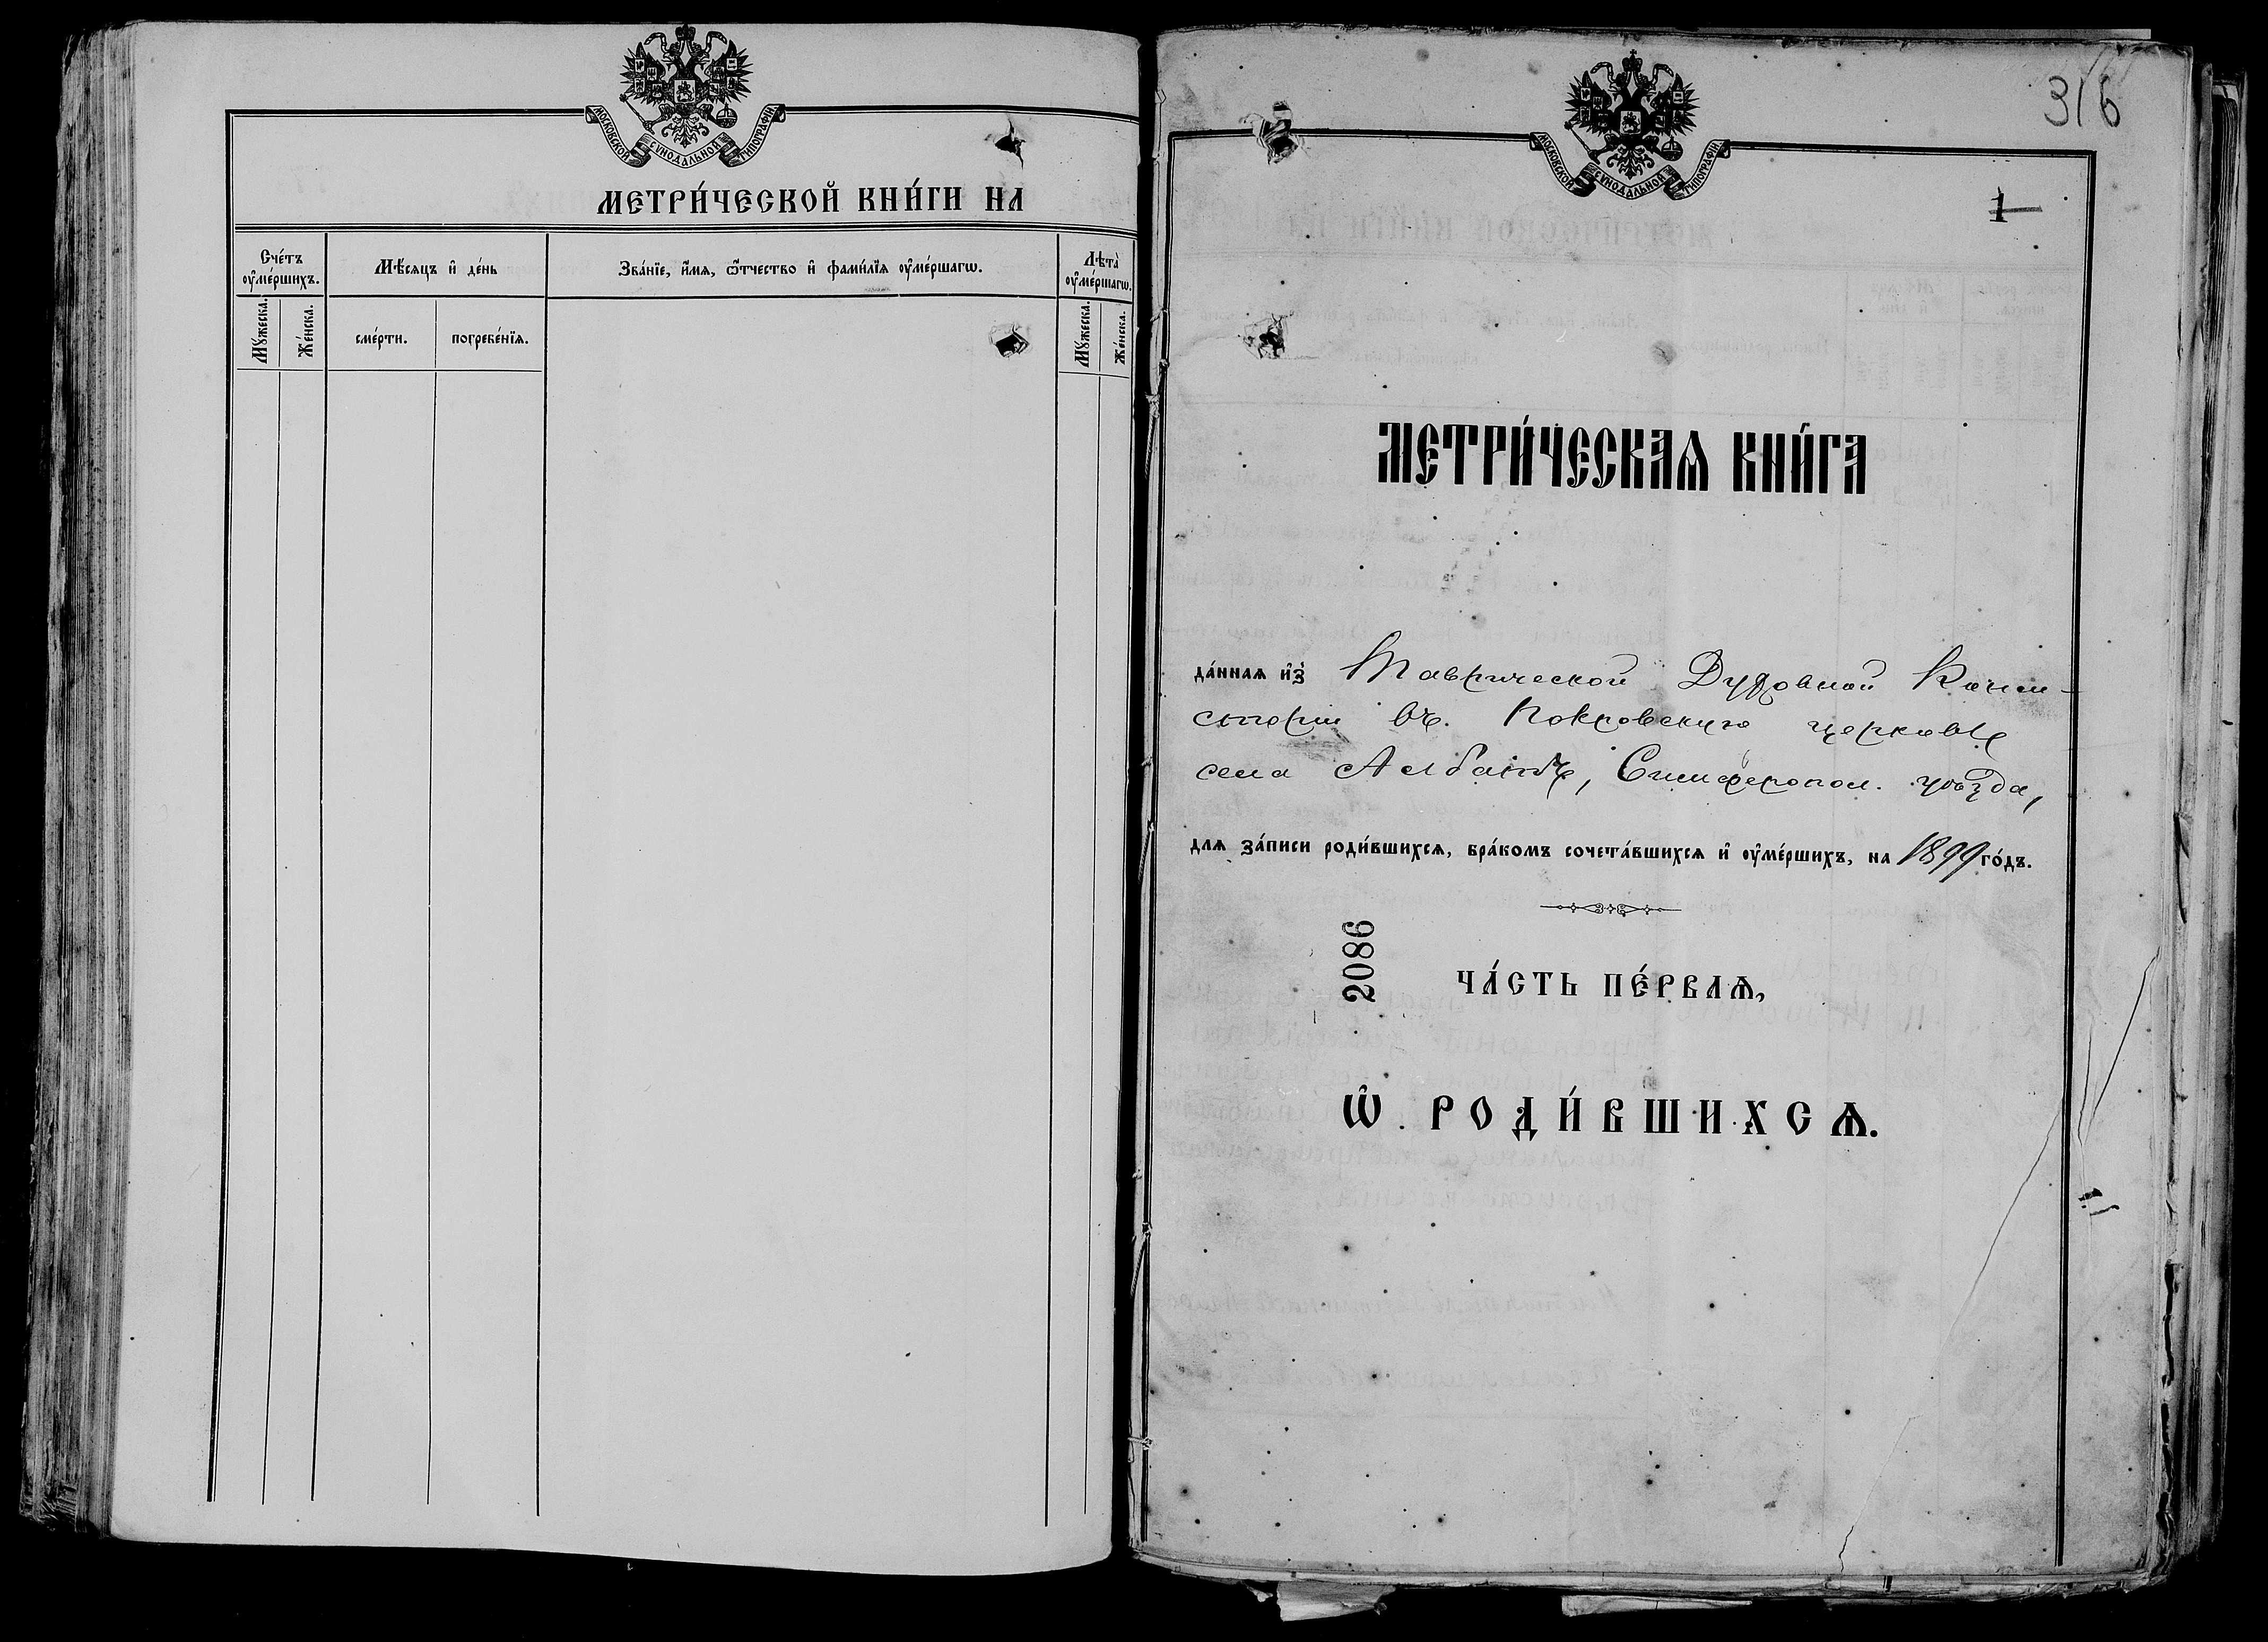 МОСКОВСКОЙ СѴНОДАЛЬНОЙ ТИПОГРАФІИ
МЕТРИ́ЧЕСКОЙ КНИ́ГИ НА
Сче́тъ ᲂу҆ме́ршихъ.
Мѣ́сяцъ и҆ де́нь
Зва́нїе, и҆́мѧ, ѻ҆́тчество и҆ фами́лїѧ ᲂу҆ме́ршагѡ.
Лѣта̀ ᲂу҆ме́ршагѡ.
Мꙋ́жеска.
Же́нска.
сме́рти.
погребе́нїѧ.
Мꙋ́жеска.
Же́нска.
316
МОСКОВСКОЙ СѴНОДАЛЬНОЙ ТИПОГРАФІИ
1
МЕТРИ́ЧЕСКАѦ КНИ́ГА
да́ннаѧ и҆з̾ Таврической Духовной Конси-
сторіи въ Покровскую церковь
села Албатъ, Симферопол. уѣзда,
длѧ за́писи роди́вшихсѧ, бра́комъ сочета́вшихсѧ и҆ ᲂу҆ме́ршихъ, на 1899 го́дъ.
2086
ЧА́СТЬ ПЕ́РВАѦ,
Ѡ҆ РОДИ́ВШИХСѦ.